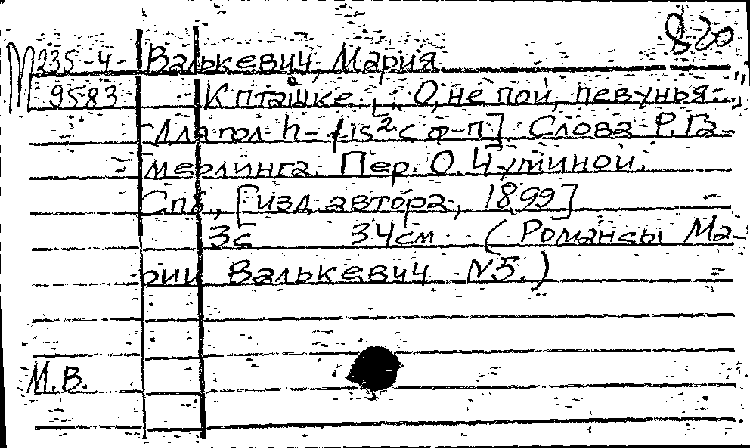 820
М 235-4- Валькевич, Мария
9583 К пташке. „О, не пой, певунья..."
[Для гол. h-fis² с ф-п] Слова Р. Га-
мерлинга. Пер. О. Чуминой.
Спб., [изд. автора, 1899]
3с 34см (Романсы Ма-
рии Валькевич N5.)
М.В.